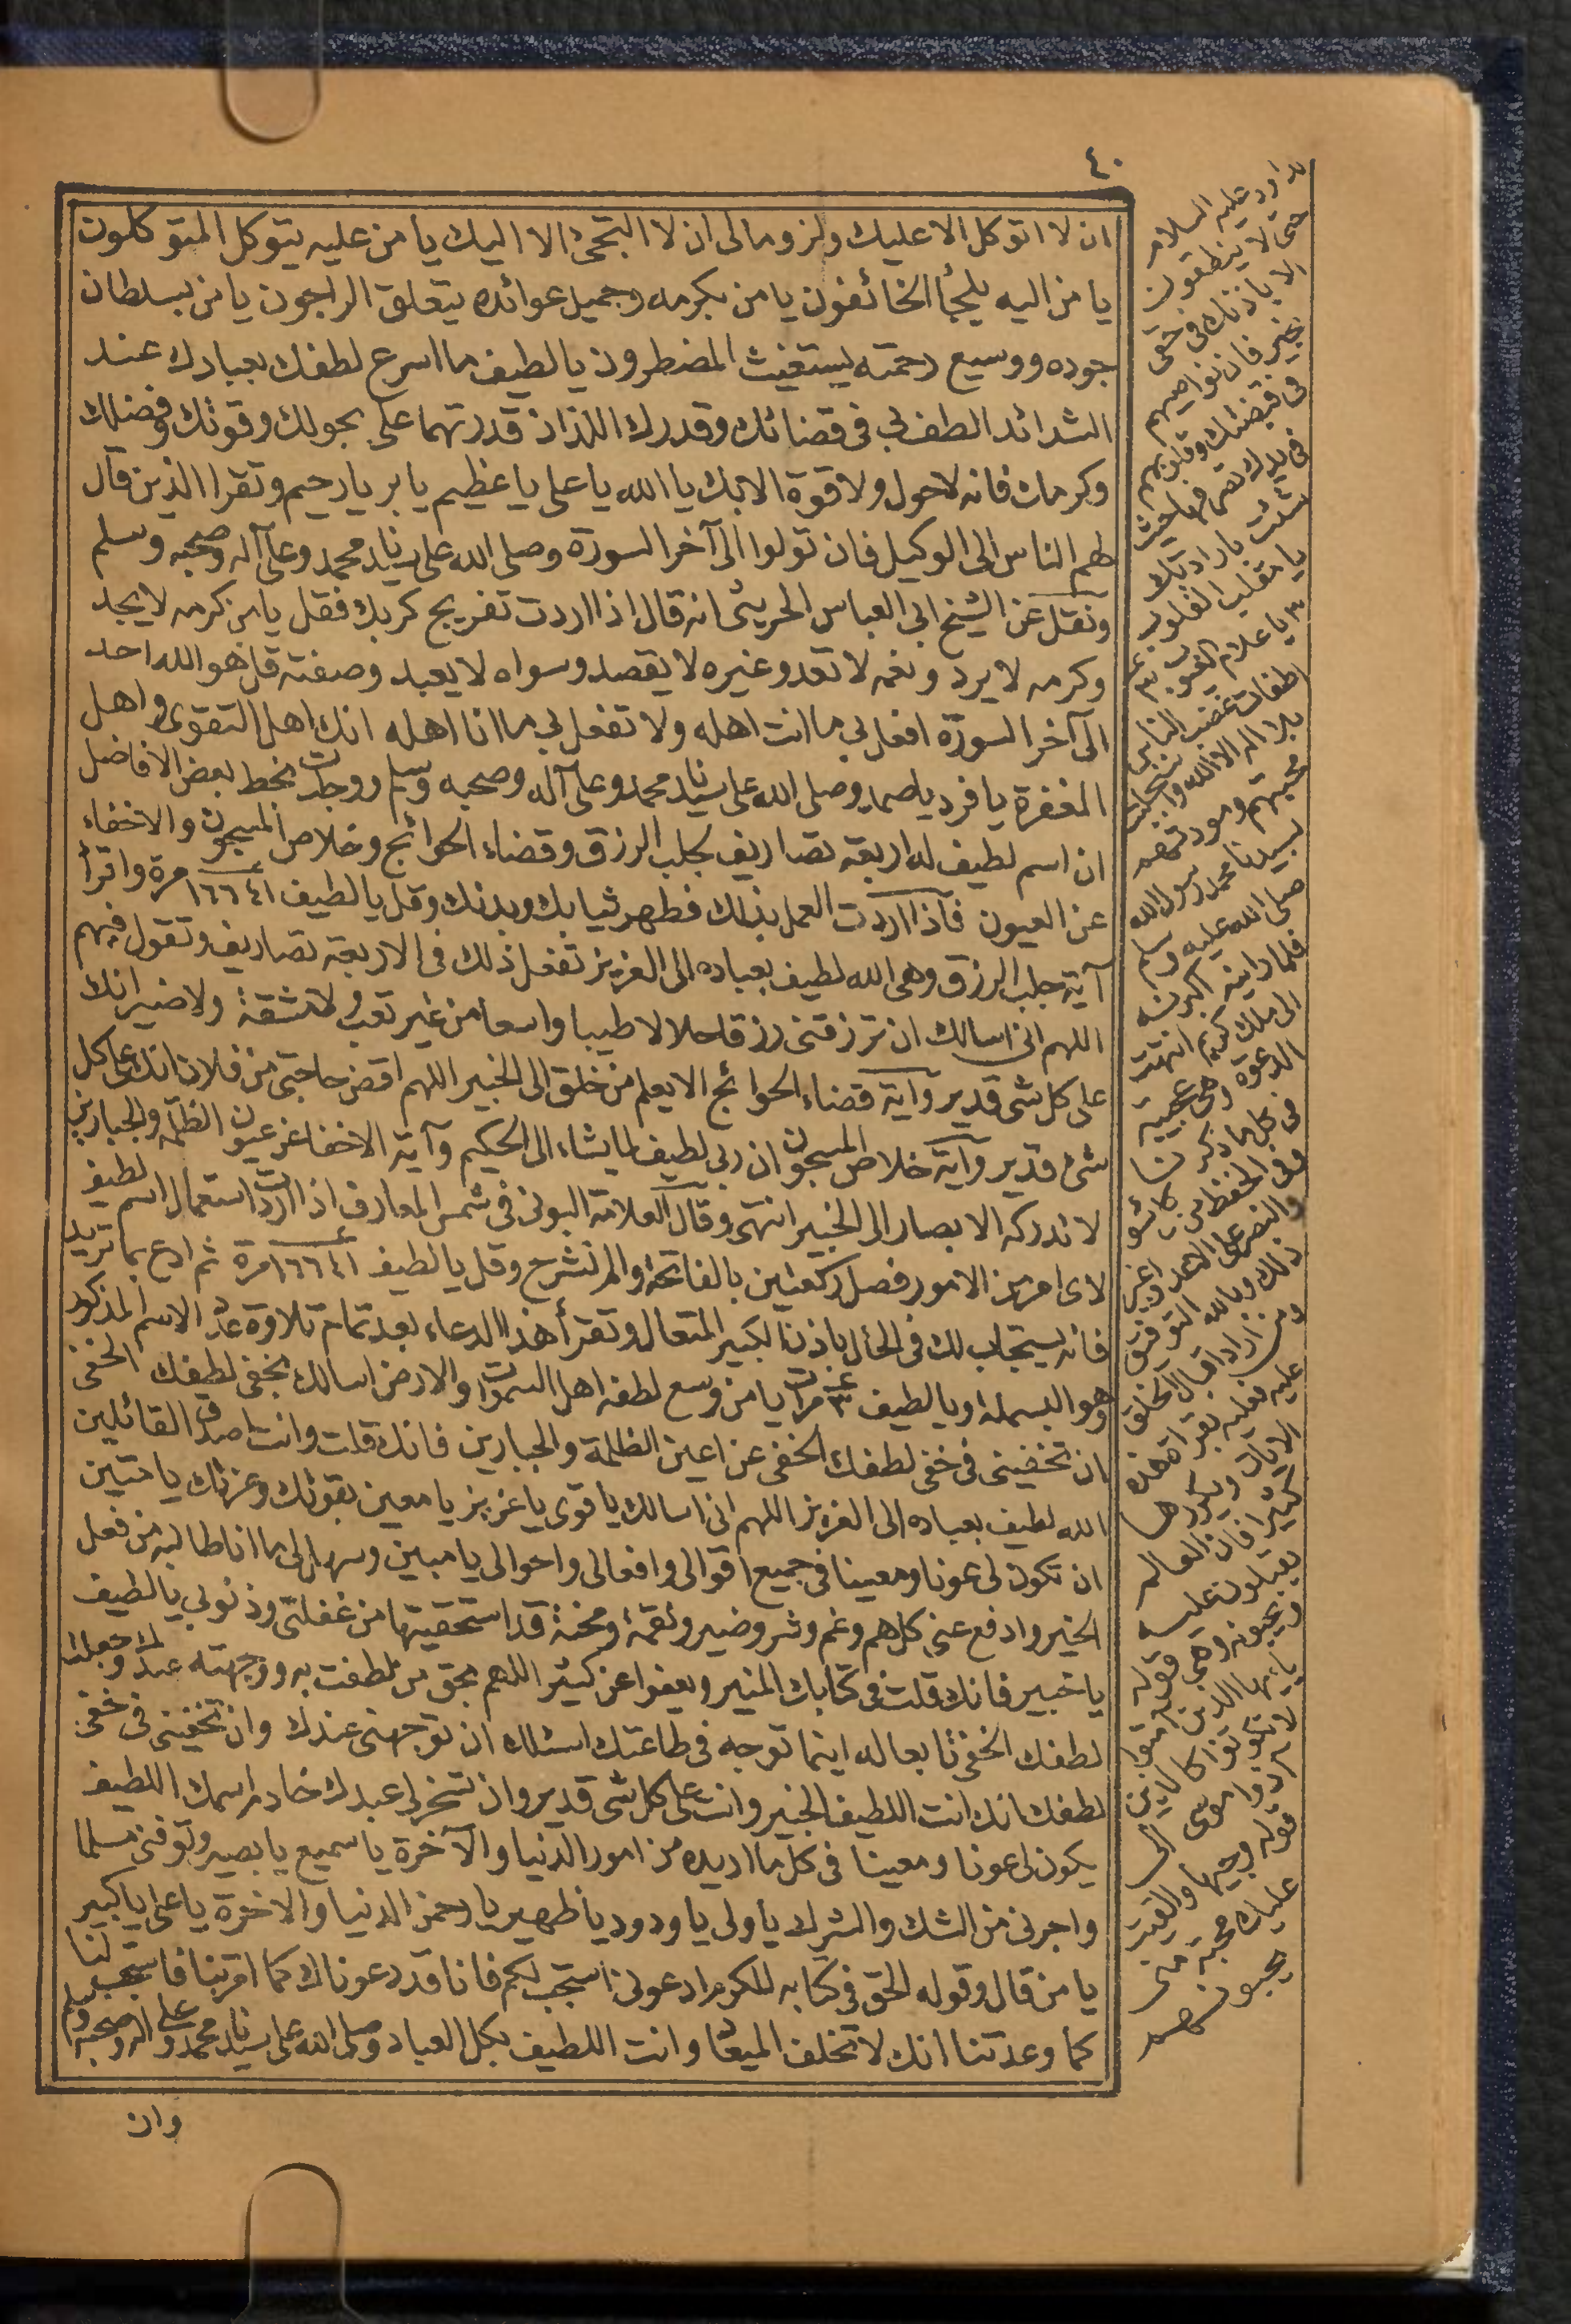 ٤٠
ان لا اتوكل الا عليك ولزوما لى ان لا التجئ الا اليك يا من عليه يتوكل المتوكلون
يا من اليه يلجأ الخائفون يا من بكرمه وجميل عوائده يتعلق الراجون يا من بسلطان
جوده ووسيع رحمته يستغيث المضطرون يا لطيف ما اسرع لطفك بعبادك عند
الشدائد الطف بى فى قضائك وقدرك اللذان قدرتهما على بحولك وقوتك وفضلك
وكرمك فانه لا حول ولا قوة الا بك يا الله يا على يا عظيم يا بر يا رحيم وتقرا الذين قال
لهم الناس الى الوكيل فان تولوا الى آخر السورة وصلى الله على سيدنا محمد وعلى آله وصحبه وسلم
ونقل عن الشيخ ابى العباس الحريثى انه قال اذا اردت تفريج كربك فقل يا من كرمه لا يحد
وكرمه لا يرد ونعمه لا تعد وغيره لا يقصد وسواه لا يعبد وصفته قل هو الله احد
الى آخر السورة افعل بى ما انت اهله ولا تفعل بى ما انا اهله انك اهل التقوى واهل
المغفرة يا فرد يا صمد وصلى الله على سيدنا محمد وعلى آله وصحبه وسلم ووجدت بخط بعض الافاضل
ان اسم لطيف له اربعة تصاريف بجلب الرزق وقضاء الحوائج وخلاص المسجون والاخفاء
عن العيون فاذا اردت العمل بذلك فطهر ثيابك وبدنك وقل يا لطيف ١٦٦٤١ مرة واقرأ
آية جلب الرزق وهى الله لطيف بعباده الى العزيز تفعل ذلك فى الاربعة تصاريف وتقول فيهم
اللهم انى اسالك ان ترزقنى رزقا حلالا طيبا واسعا من غير تعب ولا مشقة ولا ضير انك
على كل شى قدير وآية قضاء الحوائج الا يعلم من خلق الى الخبير اللهم اقض حاجتى من فلان انك على كل
شئ قدير وآية خلاص المسجون ان ربى لطيف لما يشاء الى الحكيم وآية الاخفا عن عيون الظلمة والجبارين
لا تدركه الابصار الى الخبير انتهى وقال العلامة البونى فى شمس المعارف اذا اردت استعمال اسم لطيف
لاى امر من الامور فصل ركعتين بالفاتحة والم نشرح وقل يا لطيف ١٦٦٤١ مرة ثم ادع بما تريد
فانه يستجاب لك فى الحال باذن الكبير المتعال وتقرأ هذا الدعاء بعد تمام تلاوة عدد الاسم المذكور
وهو البسملة او يا لطيف ٣ مرات يا من وسع لطفه اهل السموات والارض اسالك بخفى لطفك الخفى
ان تخفينى فى خفى لطفك الخفى عن اعين الظلمة والجبارين فانك قلت وانت اصدق القائلين
الله لطيف بعباده الى العزيز اللهم انى اسالك يا قوى يا عزيز يا معين بقوتك وعزتك يا متين
ان تكون لى عونا ومعينا فى جميع اقوالى وافعالى واحوالى يا مبين وسهل لى ما انا طالبه من فعل
الخير وادفع عنى كل هم وغم وشر وضير ونقمة ومحنة قد استحقيتها من غفلتى وذنوبى يا لطيف
يا خبير فانك قلت فى كتابك المنير ويعفوا عن كثير اللهم بحق من لطفت به ووجهته عندك وجعلت
لطفك الخفى تابعا له اينما توجه فى طاعتك اسئلك ان توجهنى عندك وان تخفينى فى خفى
لطفك انك انت اللطيف الخبير وانت على كل شى قدير وان تسخر لى عبدك خادم اسمك اللطيف
يكون لى عونا ومعينا فى كل ما اريده من امور الدنيا والآخرة يا سميع يا بصير وتوفنى مسلما
واجرنى من الشك والشرك يا ولى يا ودود يا ظهير يا رحمن الدنيا والاخرة يا على يا كبير
يا من قال وقوله الحق فى كتابه المكرم ادعونى استجب لكم فانا قد دعوناك كما امرتنا فاستجب لنا
كما وعدتنا انك لا تخلف الميعاد وانت اللطيف بكل العباد وصلى الله على سيدنا محمد وعلى اله وصحبه وسلم
وان
لداود عليه السلام
حتى لا ينطقون
الا باذنك فى حقى
بخير فان نواصيهم
فى قبضتك وقلوبهم
فى يدك تصرفها حيث
شئت بارادتك
يا مقلب القلوب
٣ يا علام الغيوب ٣
اطفات غضب الناس
بلا اله الا الله واستجلبت
محبتهم ومودتهم
بسيدنا محمد رسول الله
صلى الله عليه وسلم
فلما راينه اكبرنه
الى ملك كريم انتهت
الدعوة وهى عجيبة
فى كل ما ذكرنا
وفى الحفظ من كل سو
والنصر على الاعدا وغير
ذلك وبالله التوفيق
ومن اراد اقبال الخلق
عليه فعليه بقراة هذه
الايات ويكررها
كثيرا فان العالم
يقبلون عليه
ويحبونه وهى قوله
يا ايها الذين آمنوا
لا تكونوا كالذين
اذوا موسى الى
قوله وجيها والقيت
عليك محبة منى
يحبونهم